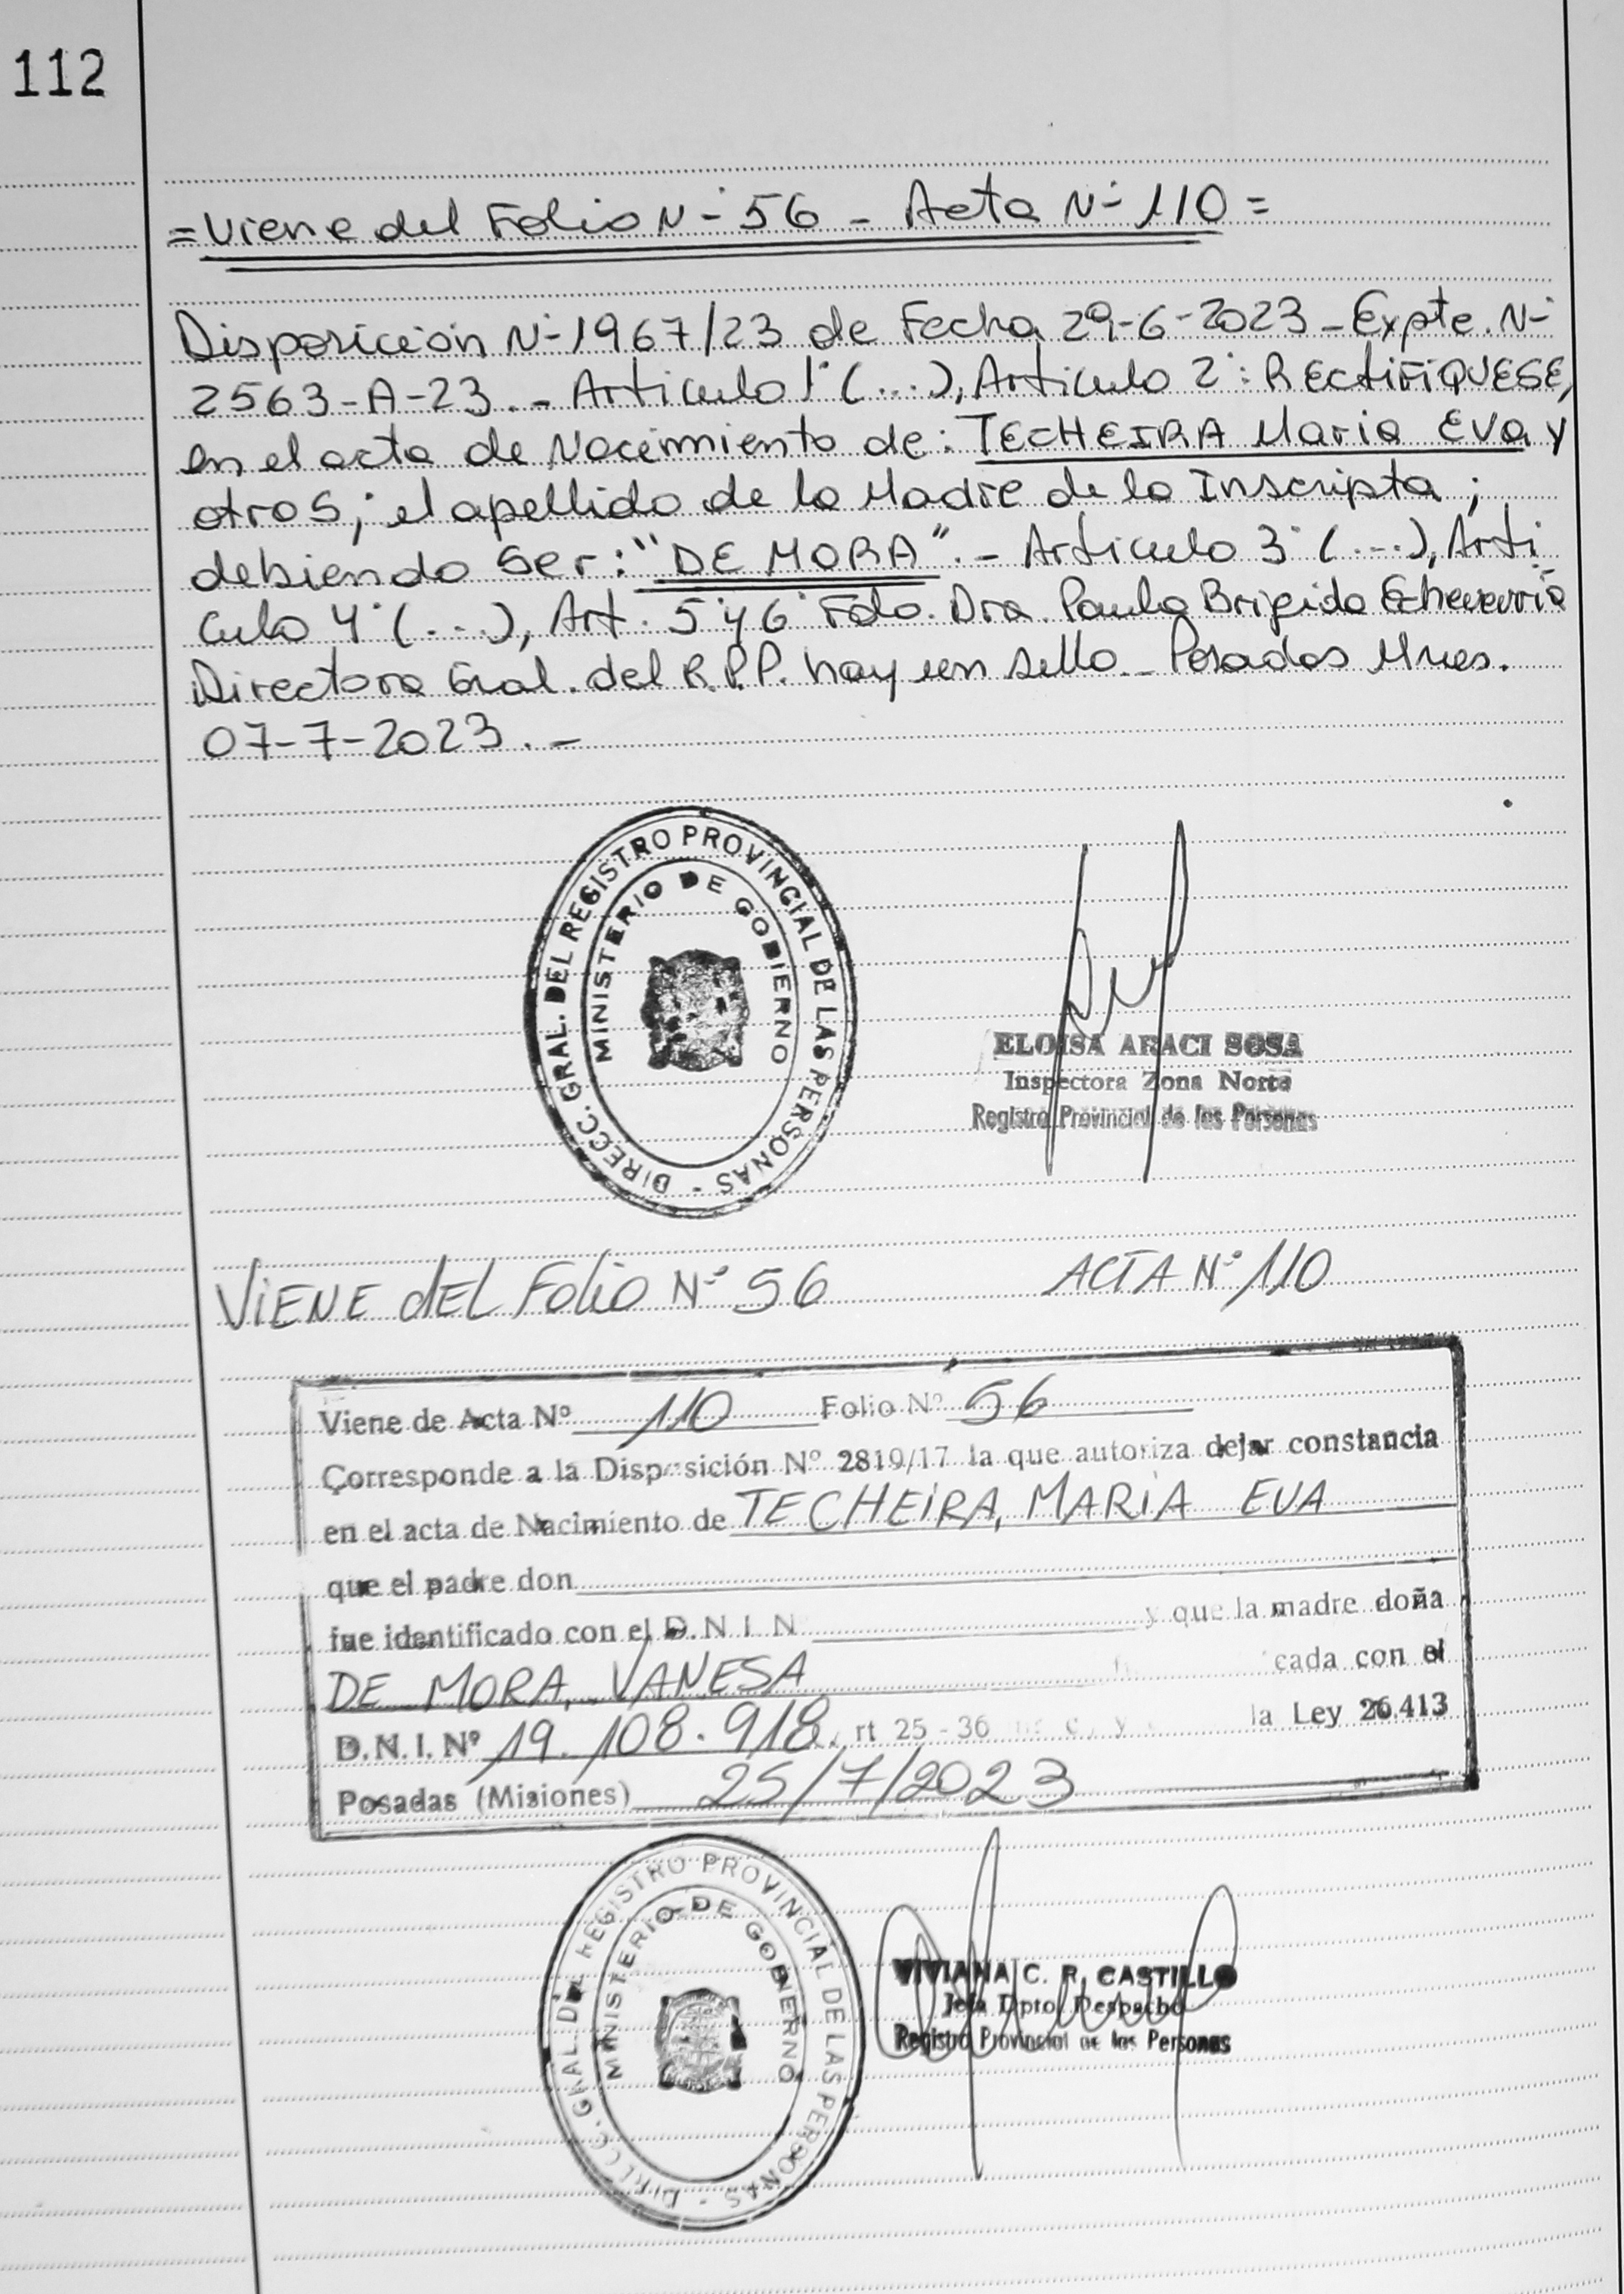 112
= Viene del Folio N° 56 - Acta N° 110 =
Disposición N° 1967/23 de Fecha 29-6-2023 - Expte. N°
2563-A-23.- Articulo 1° (...), Articulo 2°: RECTIFIQUESE,
en el acta de Nacimiento de: TECHEIRA Maria EVA y
otros; el apellido de la Madre de la Inscripta;
debiendo ser: "DE MORA".- Articulo 3° (...), Arti
culo 4° (...), Art. 5° y 6° Fdo. Dra. Paula Brigida Echeverria
Directora Gral. del R.P.P. hay un sello - Posadas Mnes.
07-7-2023.-
DIRECC. GRAL. DEL REGISTRO PROVINCIAL DE LAS PERSONAS -
MINISTERIO DE GOBIERNO
ELOISA ARACI SOSA
Inspectora Zona Norte
Registro Provincial de las Personas
VIENE DEL FOLIO N° 56 ACTA N° 110
Viene de Acta Nº 110 Folio Nº 56
Corresponde a la Disposición Nº 2819/17 la que autoriza dejar constancia
en el acta de Nacimiento de TECHEIRA, MARIA EVA
que el padre don
fue identificado con el D.N.I. N y que la madre doña
DE MORA, VANESA cada con el
D.N.I. Nº 19.108.918 rt 25 - 36 la Ley 26.413
Posadas (Misiones) 25/7/2023
DIRECC. GRAL. DEL REGISTRO PROVINCIAL DE LAS PERSONAS -
MINISTERIO DE GOBIERNO
VIVIANA C. R. CASTILLO
Jefa Dpto. Despacho
Registro Provincial de las Personas